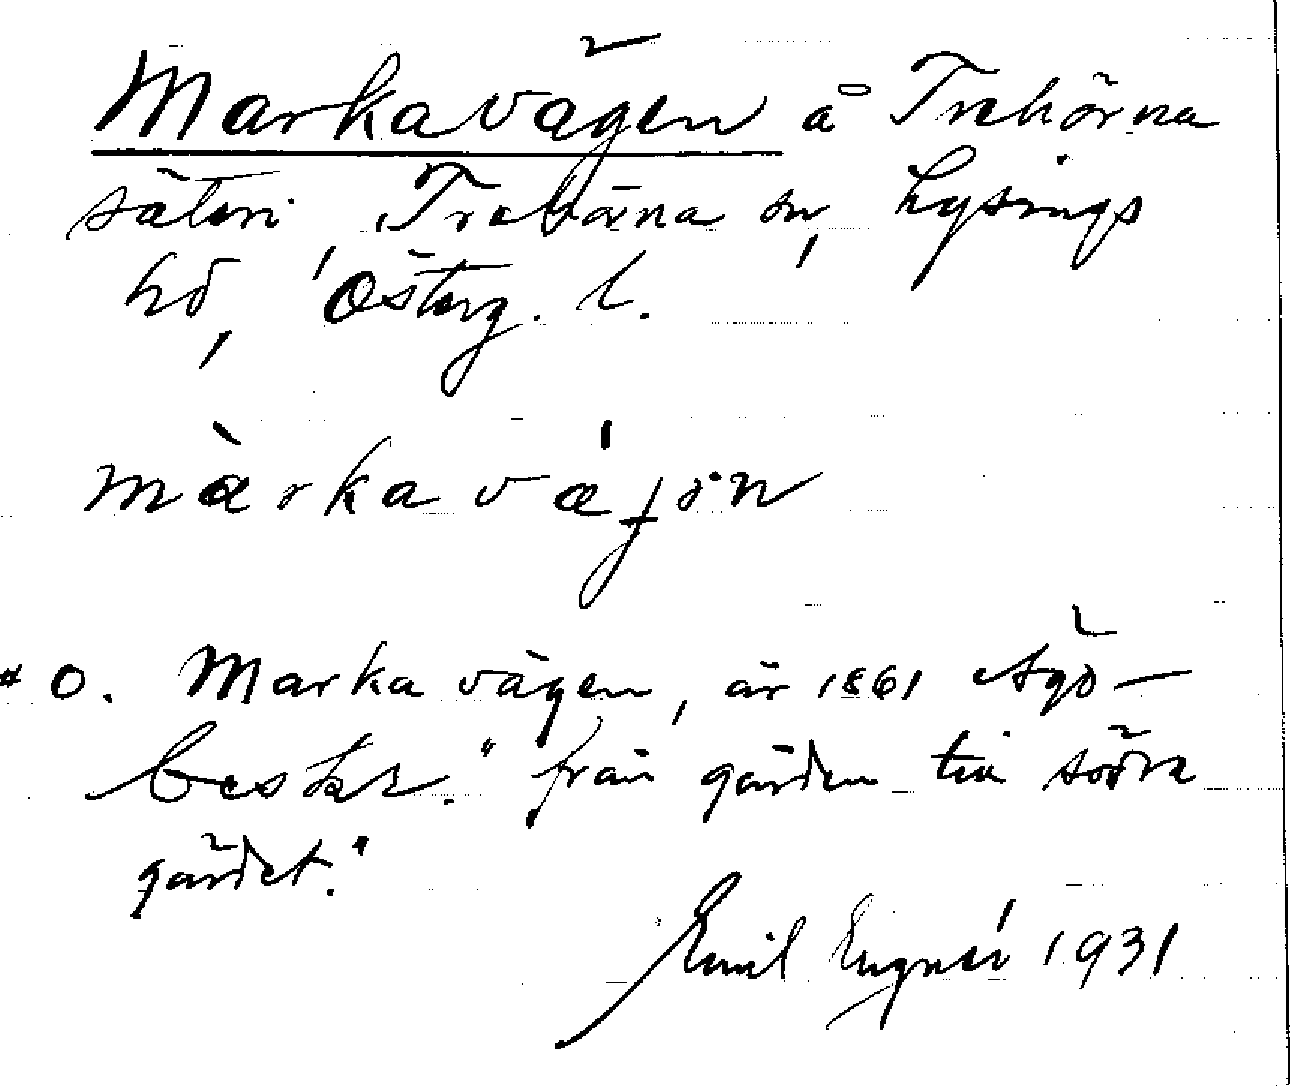 Markavägen å Trehörna
säteri, Trehörna sn, Lysings
hd, Österg. l.
màrkavǽjön
* O. Marka vägen, är 1861 Ägo-
beskr. "från gården till södra
gärdet."
Emil Engnér 1931